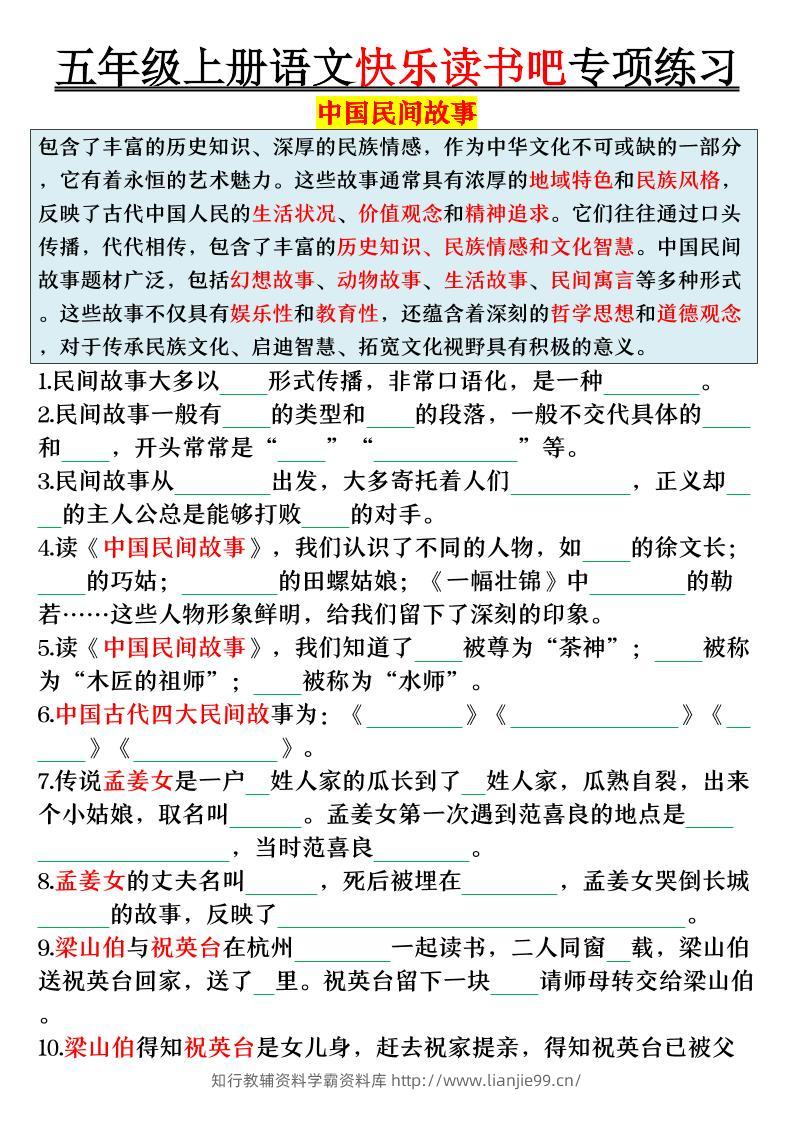 五年级上册语文快乐读书吧专项练习
中国民间故事
包含了丰富的历史知识、深厚的民族情感，作为中华文化不可或缺的一部分
，它有着永恒的艺术魅力。这些故事通常具有浓厚的地域特色和民族风格，
反映了古代中国人民的生活状况、价值观念和精神追求。它们往往通过口头
传播，代代相传，包含了丰富的历史知识、民族情感和文化智慧。中国民间
故事题材广泛，包括幻想故事、动物故事、生活故事、民间寓言等多种形式
。这些故事不仅具有娱乐性和教育性，还蕴含着深刻的哲学思想和道德观念
，对于传承民族文化、启迪智慧、拓宽文化视野具有积极的意义。
1.民间故事大多以____形式传播，非常口语化，是一种________。
2.民间故事一般有____的类型和____的段落，一般不交代具体的____
和____，开头常常是“____”“____________”等。
3.民间故事从________出发，大多寄托着人们__________，正义却__
__的主人公总是能够打败____的对手。
4.读《中国民间故事》，我们认识了不同的人物，如____的徐文长；
____的巧姑；________的田螺姑娘；《一幅壮锦》中________的勒
若……这些人物形象鲜明，给我们留下了深刻的印象。
5.读《中国民间故事》，我们知道了____被尊为“茶神”；____被称
为“木匠的祖师”；____被称为“水师”。
6.中国古代四大民间故事为：《________》《______________》《__
____》《____________》。
7.传说孟姜女是一户__姓人家的瓜长到了__姓人家，瓜熟自裂，出来
个小姑娘，取名叫______。孟姜女第一次遇到范喜良的地点是____
________________，当时范喜良________。
8.孟姜女的丈夫名叫______，死后被埋在________，孟姜女哭倒长城
______的故事，反映了__________________________________。
9.梁山伯与祝英台在杭州________一起读书，二人同窗__载，梁山伯
送祝英台回家，送了__里。祝英台留下一块____请师母转交给梁山伯
。
10.梁山伯得知祝英台是女儿身，赶去祝家提亲，得知祝英台已被父
知行教辅资料学霸资料库 http://www.lianjie99.cn/